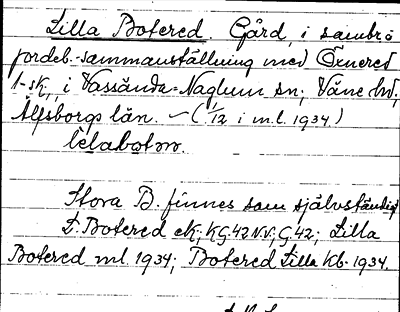 Lilla Botered. Gård, i sambrö
jordeb.-sammanställning med Önered
1-sk, i Vassända-Naglum sn; Väne hd,
Älfsborgs län. – (1/12 i m.l. 1934.)
Stora B. finnes som självständig
L. Botered ek; KG.42 NV; G.42; Lilla
Botered ml. 1934; Botered Lilla kb. 1934.